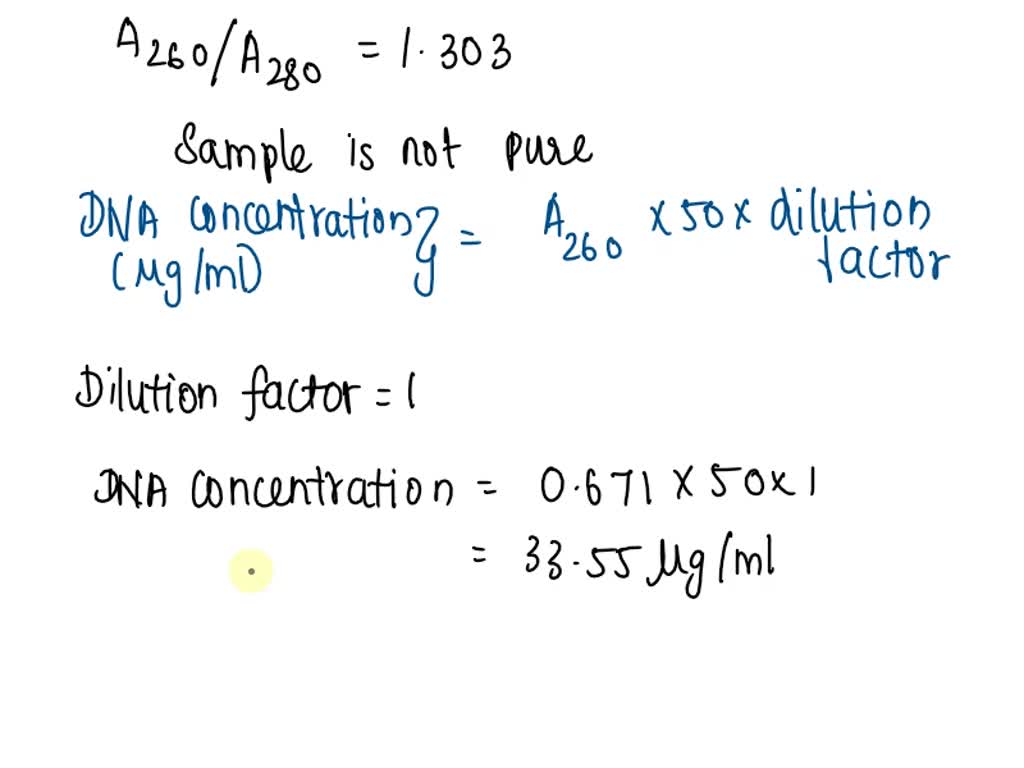 A260/A280 = 1.303
Sample is not pure
DNA concentration } = A260 x 50 x dilution
(μg/ml) factor
Dilution factor = 1
DNA concentration = 0.671 x 50 x 1
= 33.55 μg/ml